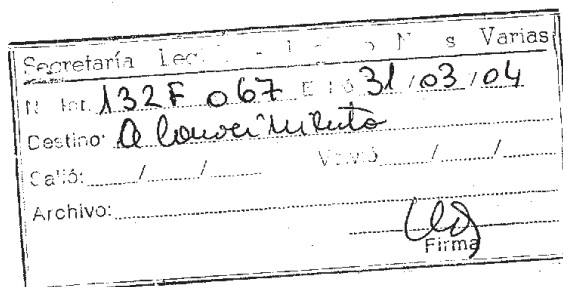 Secretaría Varias
N Int. 132F 067 E 31/03/04
Destino: A Conocimiento
Salió: / / Volvió / /
Archivo:
Firma